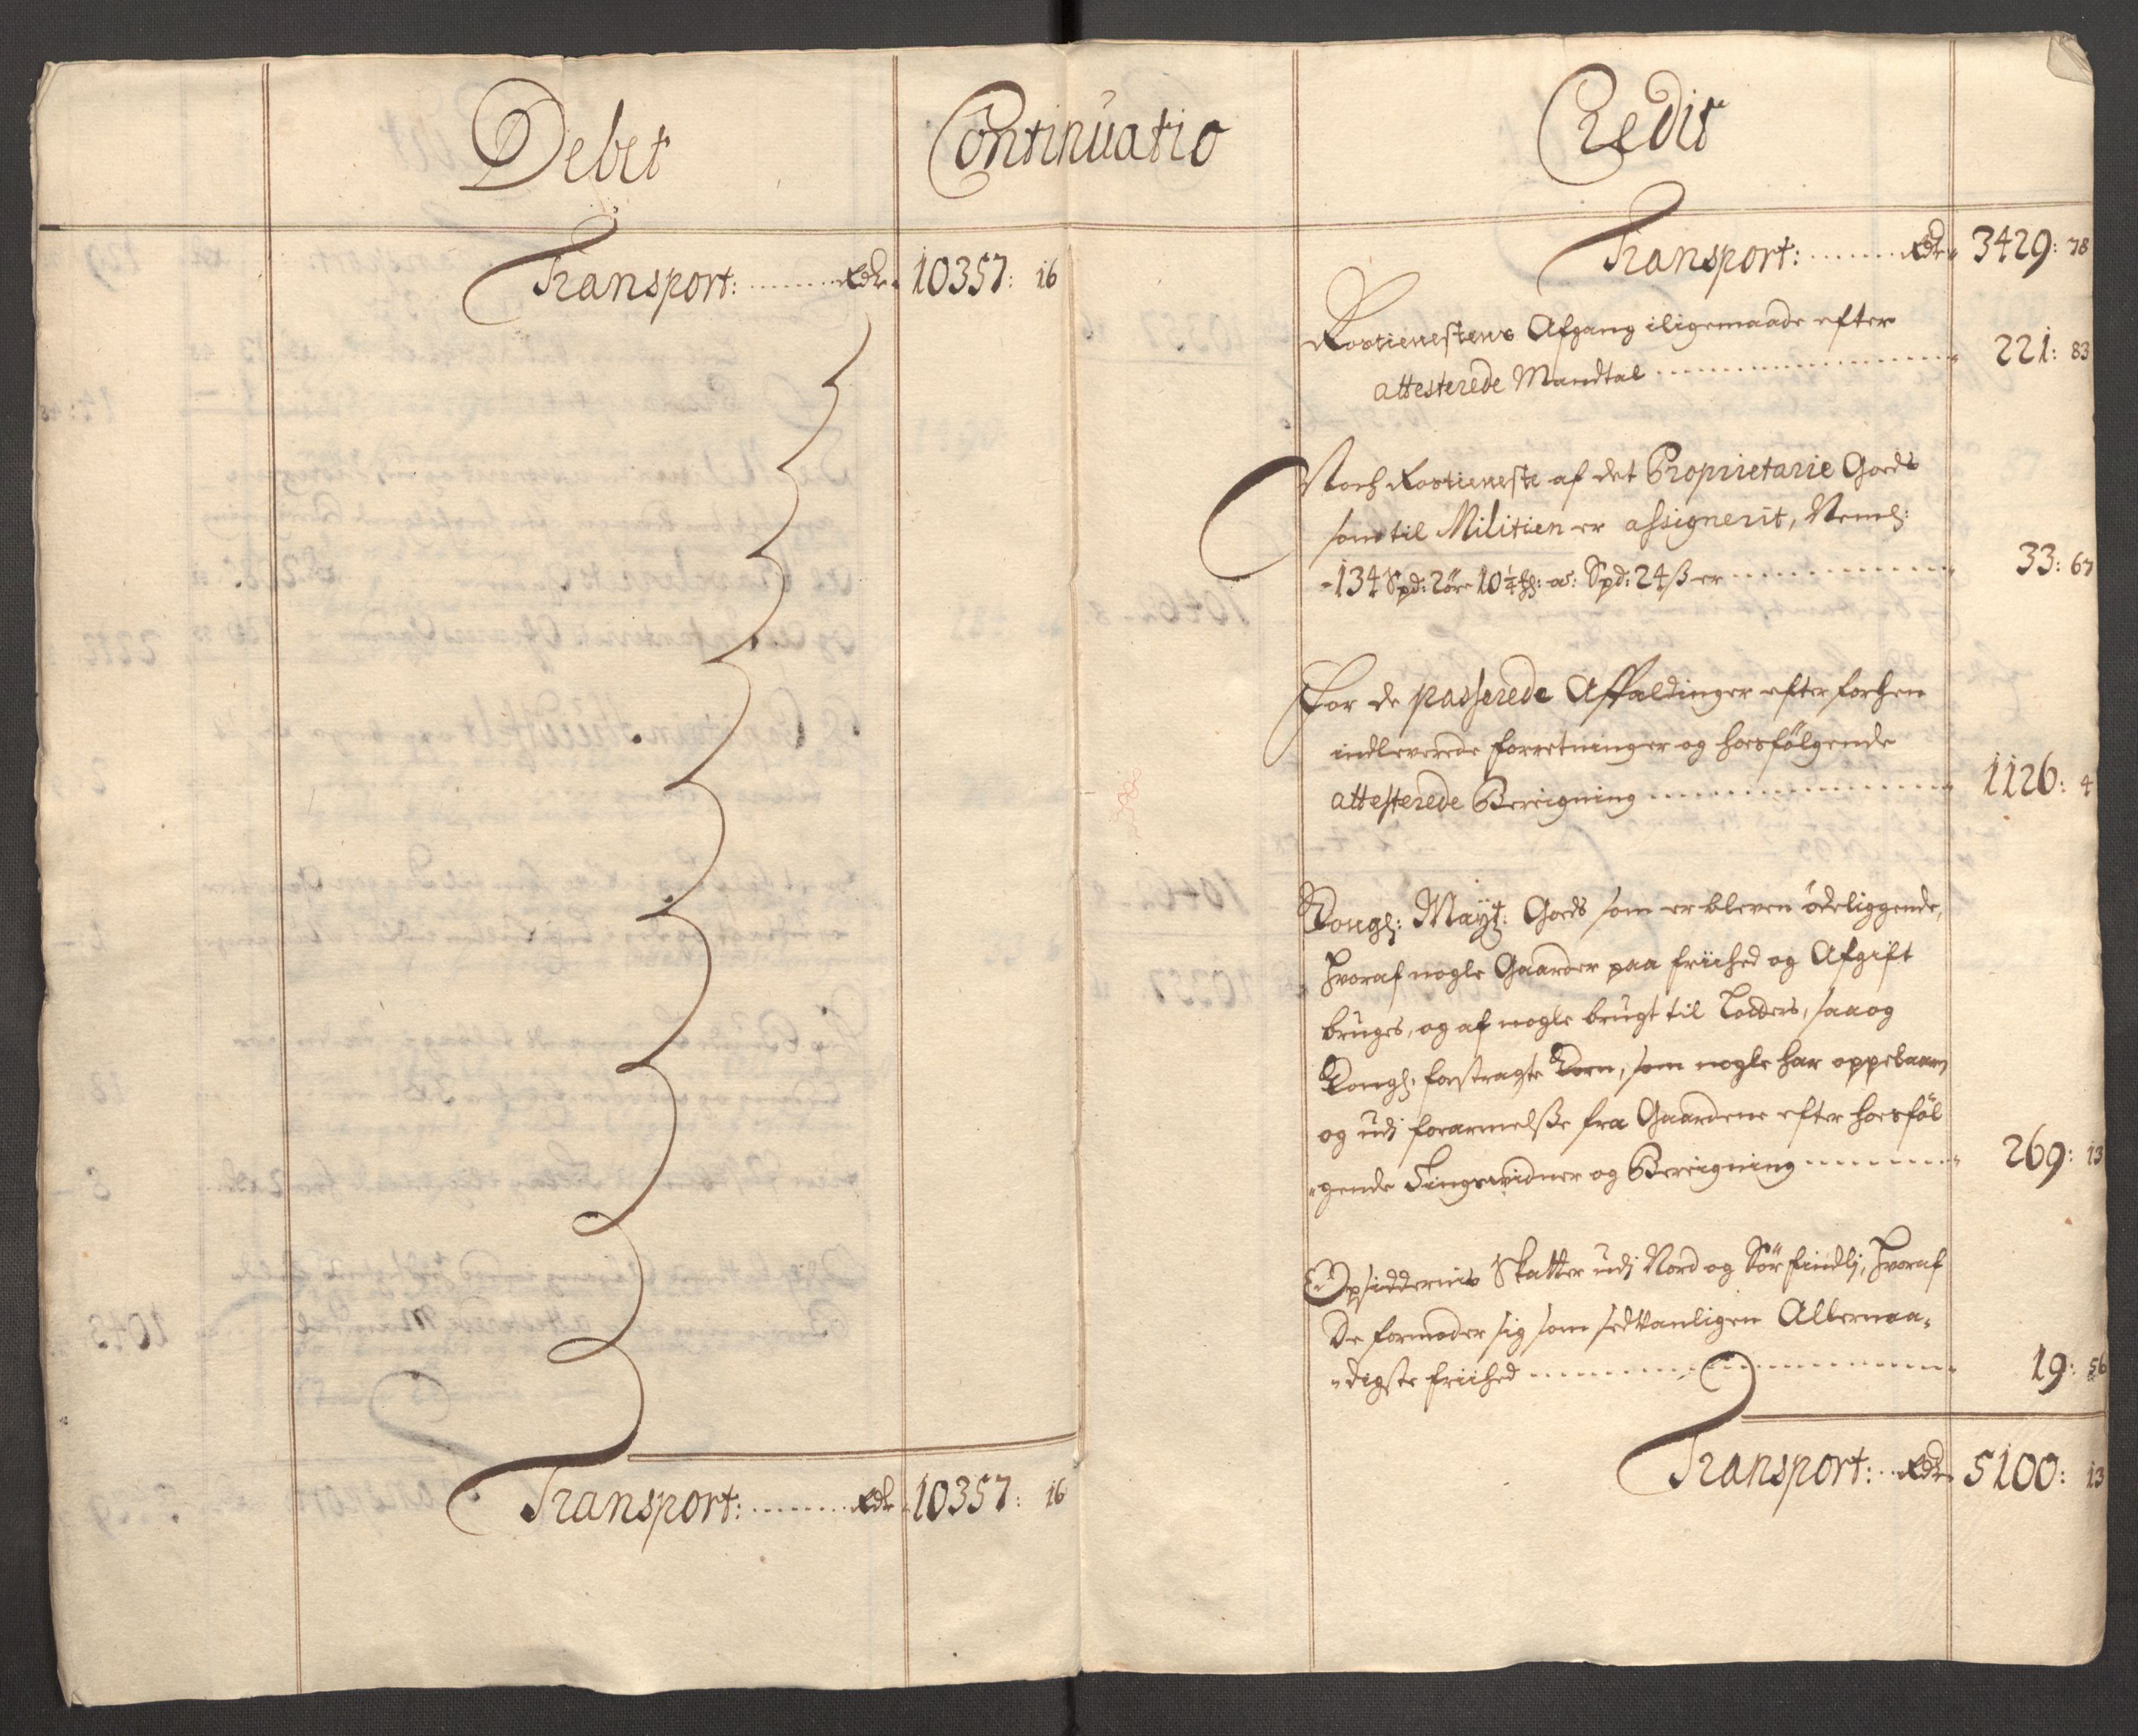 Debet
Continuatio
Transport: ........ Rdr. 10357: 16
Transport: ........ Rdr. 10357: 16
Credit
Transport: ....... Rdr. 3429: 78
Rostienestens Afgang iligemaade efter
attesterede Mandtal ........ 221: 83
Noch Rostieneste af det Proprietarie Goeds
som til Militien er assignerit, Neml:
134 Spd: 2ör 10¼ a: Spd: 24 ß er ........ 33: 67
For de passerede Affældinger efter forhen
indleverede forretninger og hoesfölgende
attesterede Beregning ........ 1126: 4
Kongl: Mayt: Goeds som er bleven ödeliggende,
hvoraf nogle Gaarder paa friihed og Afgift
bruges, og af nogle brugt til, saa og
Kongl: forstragte Korn, som nogle har oppebaaren
og udj forarmelsse fra Gaardene efter hoesföl
gende Tingsvidner og Beregning ........ 269: 13
Opsiddernis Skatter udj Nord og Sör findlj, hvoraf
De formoder sig som sedvanligen Allernaa-
digste friihed ........ 19: 56
Transport: .. Rdr. 5100: 13